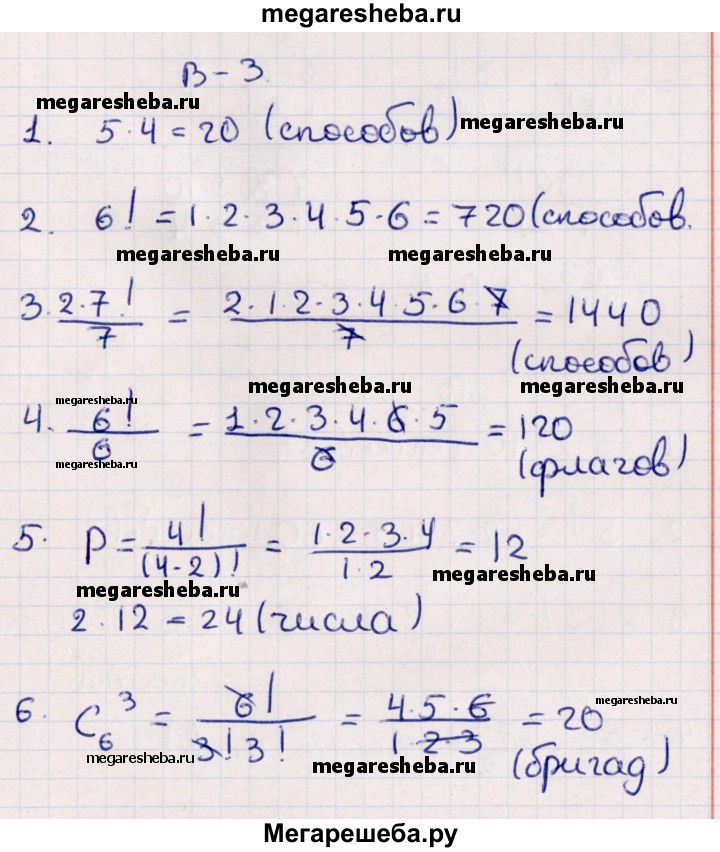 megaresheba.ru
В-3.
megaresheba.ru
1. 5·4=20 (способов) megaresheba.ru
2. 6! = 1·2·3·4·5·6 = 720 (способов.
megaresheba.ru megaresheba.ru
3. 2·7!/7 = 2·1·2·3·4·5·6·7/7 = 1440
(способов)
megaresheba.ru megaresheba.ru
megaresheba.ru
4. 6!/6 = 1·2·3·4·6·5/6 = 120
(флагов)
megaresheba.ru
5. P = 4!/(4-2)! = 1·2·3·4/1·2 = 12
megaresheba.ru megaresheba.ru
2·12 = 24 (числа)
megaresheba.ru
6. C₆³ = 6!/3!3! = 4·5·6/1·2·3 = 20
(бригад)
megaresheba.ru megaresheba.ru
Мегарешеба.ру